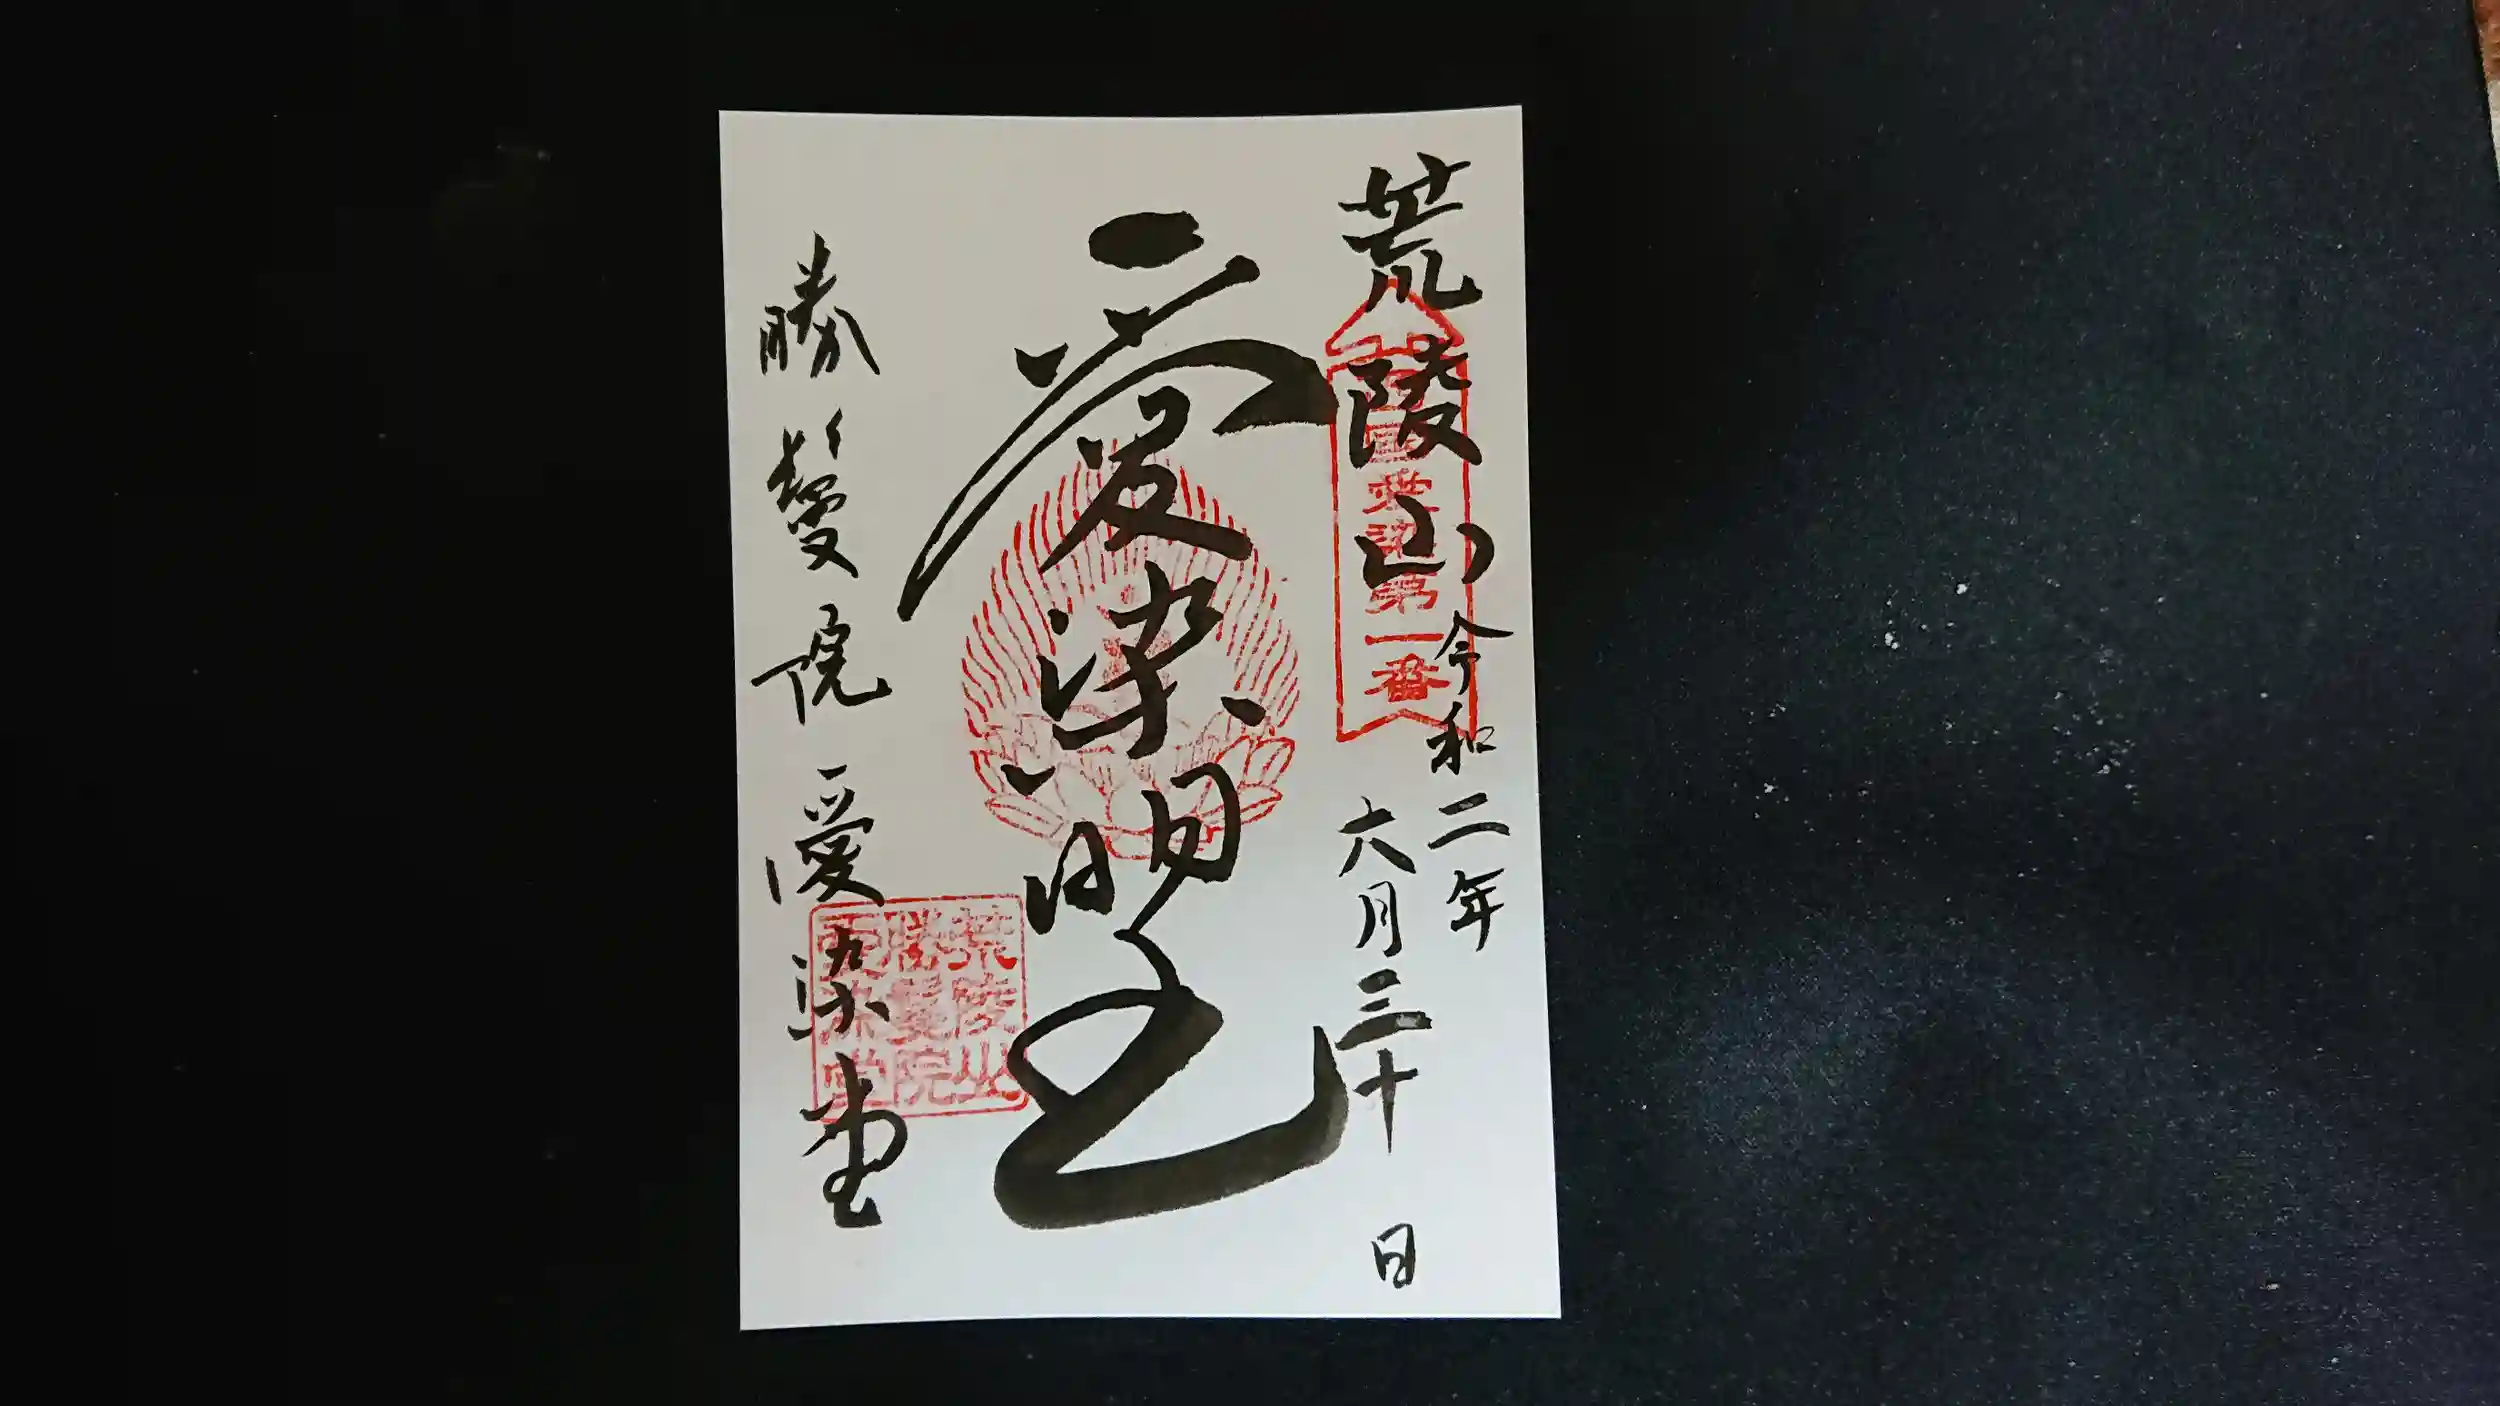 荒陵山
令和二年
六月三十日
西国愛染第一番
愛染明王
勝鬘院愛染堂
荒陵山
勝鬘院
愛染堂